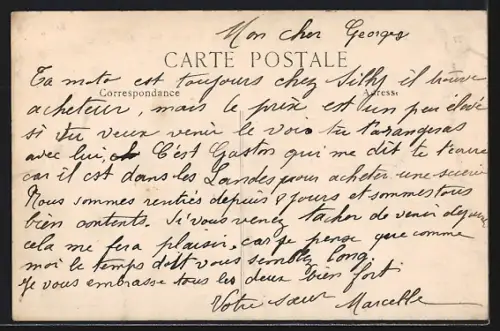 Mon cher Georges
CARTE POSTALE
Ta moto est toujours chez il trouve
Correspondance Adresse
acheteur, mais le prix est un peu élevé
si tu veux venir le voir tu t'arangeras
avec lui, C'est Gaston qui me dit te l'écrire
car il est dans les Landes pour acheter une scierie
Nous sommes rentrés depuis 8 jours et sommes tous
bien contents. Si vous venez tacher de venir
cela me fera plaisir, car je pense que comme
moi le temps doit vous sembler long.
Je vous embrasse tous les deux bien fort
Votre sœur Marcelle